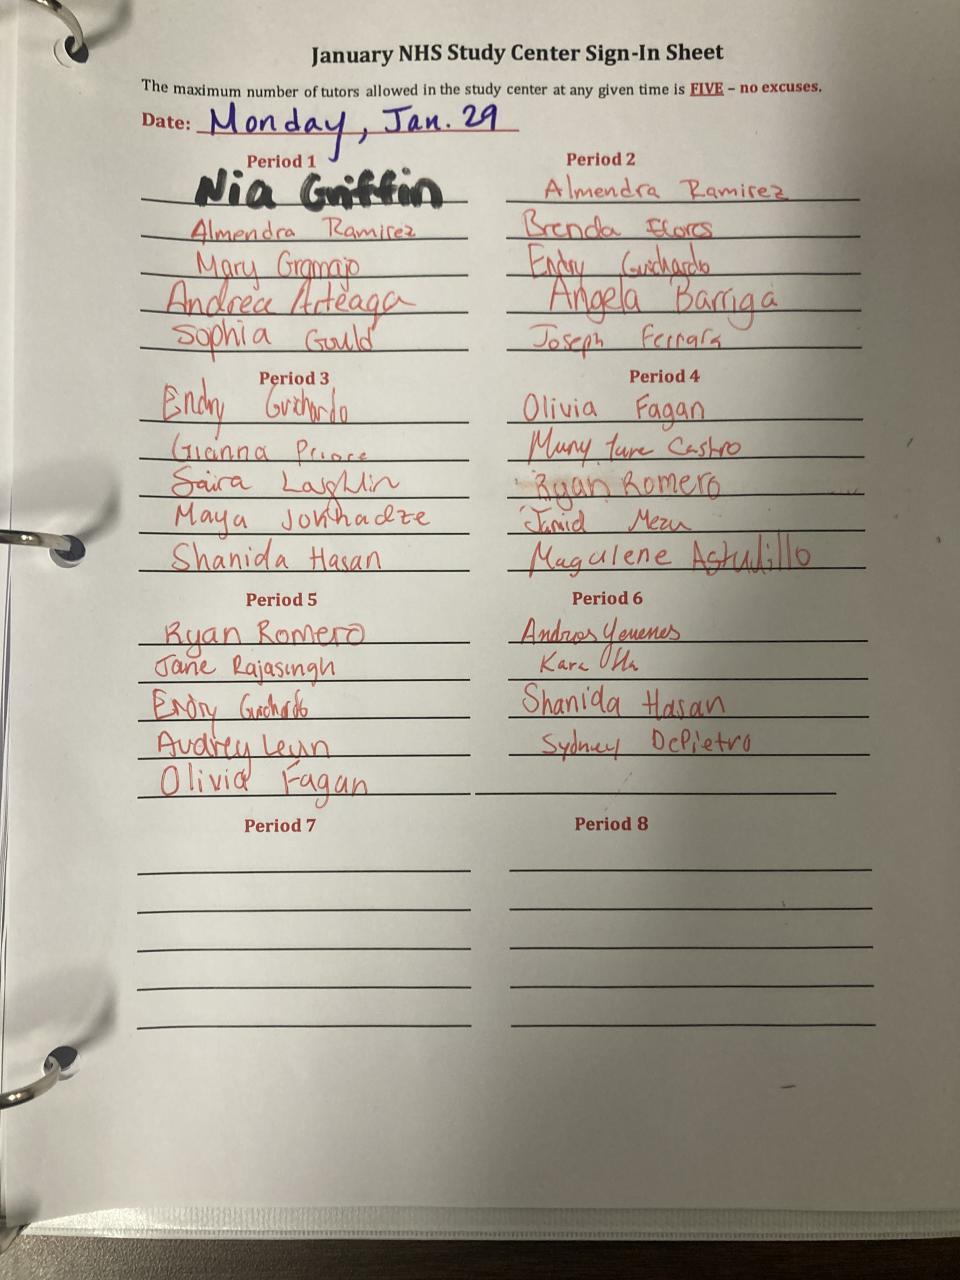 January NHS Study Center Sign-In Sheet
The maximum number of tutors allowed in the study center at any given time is FIVE – no excuses.
Date: Monday, Jan. 29
Period 1
Nia Griffin
Almendra Ramirez
Mary Gramajo
Andrea Arteaga
Sophia Gould
Period 2
Almendra Ramirez
Brenda Flores
Endry Guichardo
Angela Barriga
Joseph Ferrara
Period 3
Endry Guichardo
Gianna Prince
Saira Laghlin
Maya Jokhadze
Shanida Hasan
Period 4
Olivia Fagan
Castro
Ryan Romero
Magdlene Astudillo
Period 5
Ryan Romero
Jane Rajasingh
Endry Guichardo
Audrey Leyn
Olivia Fagan
Period 6
Andros
Kara
Shanida Hasan
Sydney DePietro
Period 7
Period 8